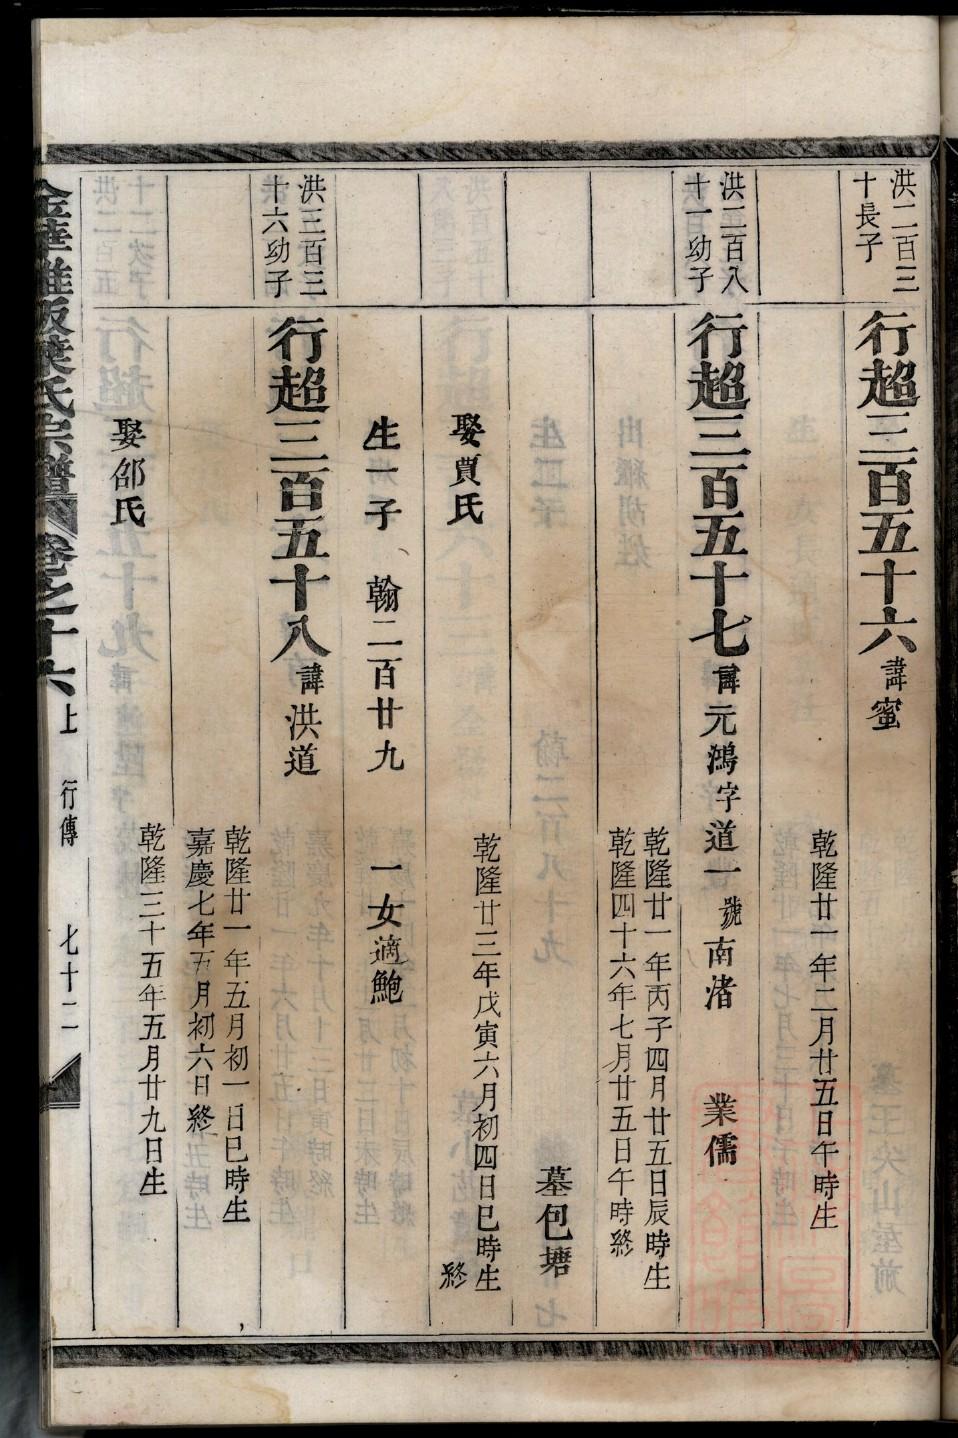 洪二百三
十長子
行超三百五十六 諱蜜
乾隆廿一年二月廿五日午時生
洪二百八
十一幼子
行超三百五十七 諱元鴻字道一號南渚 業儒
乾隆廿一年丙子四月廿五日辰時生
乾隆四十六年七月廿五日午時終
墓包塘
娶賈氏
乾隆廿三年戊寅六月初四日巳時生
終
生一子 翰二百廿九 一女適鮑
洪三百三
十六幼子
行超三百五十八 諱洪道
乾隆廿一年五月初一日巳時生
嘉慶七年五月初六日終
娶邰氏
乾隆三十五年五月廿九日生
金華雅畈葉氏宗譜 卷之十六上 行傳 七十二